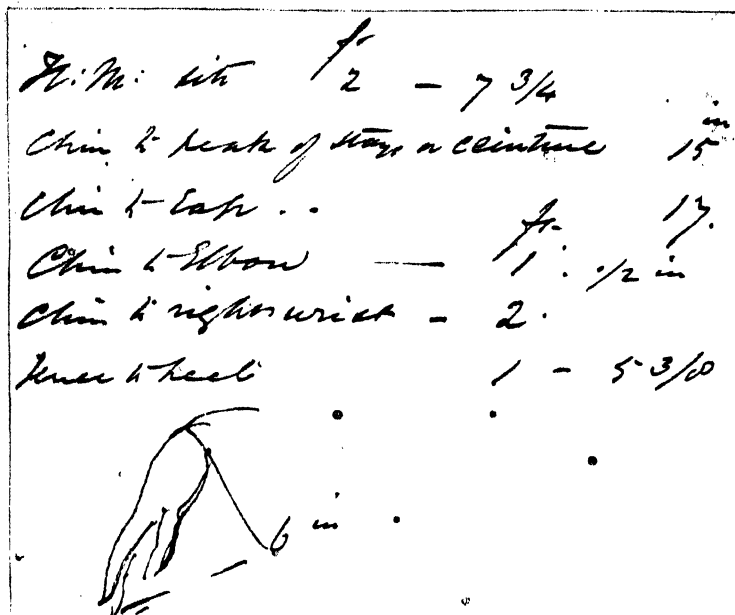 ft.
H: M: sits 2 - 7 3/4
in
Chin to peak of stays or ceinture 15
Chin to Lap . . 17.
ft.
Chin to Elbow — 1 . 1/2 in
Chin to right wrist - 2 .
Knee to heel 1 - 5 3/8
6 in